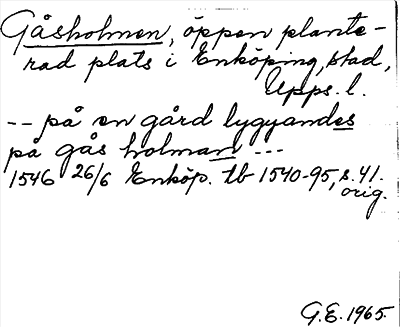 Gåsholmen, öppen plante-
rad plats i Enköping, stad,
Upps. l.
-- på en gård lygyandes
på gås holman ---
1546 26/6 Enköp. tb 1540-95, s. 41.
orig.
G.E. 1965.